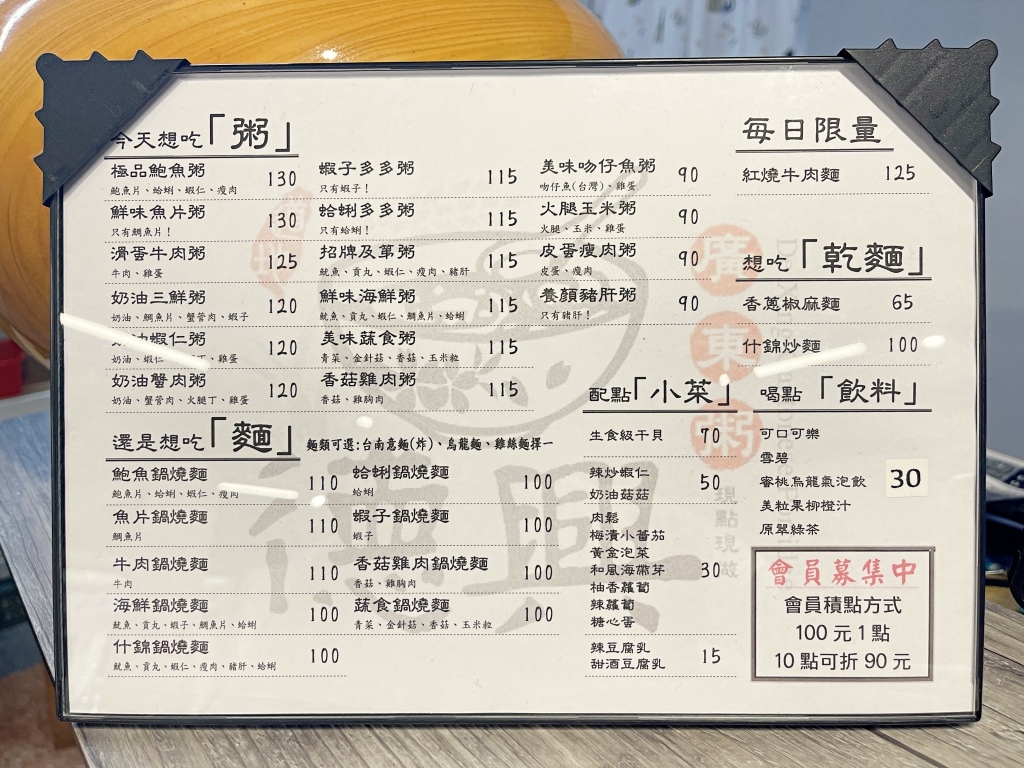 今天想吃「粥」
極品鮑魚粥 130
鮑魚片、蛤蜊、蝦仁、瘦肉
鮮味魚片粥 130
只有鯛魚片!
滑蛋牛肉粥 125
牛肉、雞蛋
奶油三鮮粥 120
奶油、鯛魚片、蟹管肉、蝦子
油蝦仁粥 120
奶油、蝦仁、丁、雞蛋
奶油蟹肉粥 120
奶油、蟹管肉、火腿丁、雞蛋
蝦子多多粥 115
只有蝦子!
蛤蜊多多粥 115
只有蛤蜊!
招牌及第粥 115
魷魚、貢丸、蝦仁、瘦肉、豬肝
鮮味海鮮粥 115
魷魚、貢丸、蝦仁、鯛魚片、蛤蜊
美味蔬食粥 115
青菜、金針菇、香菇、玉米粒
香菇雞肉粥 115
香菇、雞胸肉
美味吻仔魚粥 90
吻仔魚(台灣)、雞蛋
火腿玉米粥 90
火腿、玉米、雞蛋
皮蛋瘦肉粥 90
皮蛋、瘦肉
養顏豬肝粥 90
只有豬肝!
每日限量
紅燒牛肉麵 125
想吃「乾麵」
香蔥椒麻麵 65
什錦炒麵 100
還是想吃「麵」
麵類可選:台南意麵(炸)、烏龍麵、雞絲麵擇一
鮑魚鍋燒麵 110
鮑魚片、蛤蜊、蝦仁、瘦肉
魚片鍋燒麵 110
鯛魚片
牛肉鍋燒麵 110
牛肉
海鮮鍋燒麵 100
魷魚、貢丸、蝦子、鯛魚片、蛤蜊
什錦鍋燒麵 100
魷魚、貢丸、蝦仁、瘦肉、豬肝、蛤蜊
蛤蜊鍋燒麵 100
蛤蜊
蝦子鍋燒麵 100
蝦子
香菇雞肉鍋燒麵 100
香菇、雞胸肉
蔬食鍋燒麵 100
青菜、金針菇、香菇、玉米粒
配點「小菜」
生食級干貝 70
辣炒蝦仁
奶油菇菇
50
肉鬆
梅漬小番茄
黃金泡菜
和風海帶芽
柚香蘿蔔
辣蘿蔔
糖心蛋
30
辣豆腐乳
甜酒豆腐乳
15
喝點「飲料」
可口可樂
雪碧
蜜桃烏龍氣泡飲
美粒果柳橙汁
原翠綠茶
30
會員募集中
會員積點方式
100 元 1 點
10 點可折 90 元
廣東粥
德興